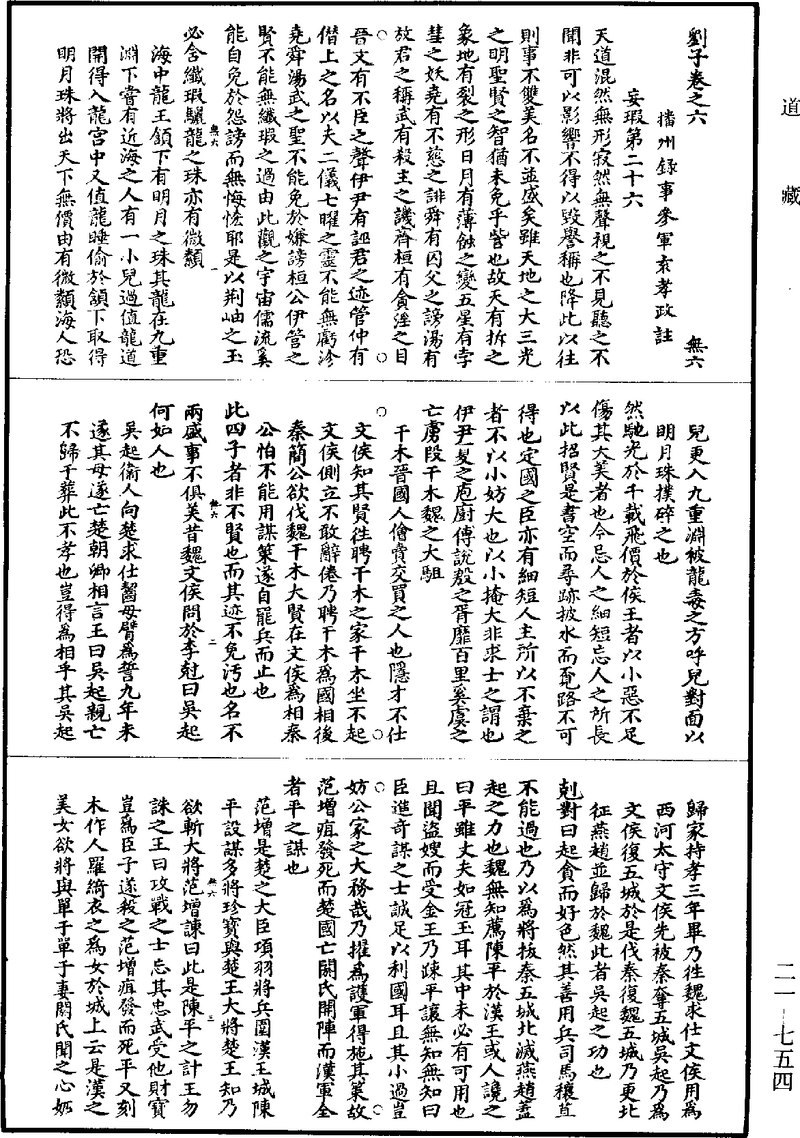 道藏
劉子卷之六
無六
播州錄事參軍袁孝政註
妄瑕第二十六
天道混然無形寂然無聲視之不見聽之不
聞非可以影響不得以毀譽稱也降此以往
則事不雙美名不並盛矣雖天地之大三光
之明聖賢之智猶未免乎訾也故天有拆之
象地有裂之形日月有薄蝕之變五星有孛
彗之妖堯有不慈之誹舜有囚父之謗湯有
放君之稱武有殺主之譏齊桓有貪淫之目
晉文有不臣之聲伊尹有誣君之迹管仲有
僭上之名以夫二儀七曜之靈不能無虧沴
堯舜湯武之聖不能免於嫌謗桓公伊管之
賢不能無纖瑕之過由此觀之宇宙儒流奚
能自免於怨謗而無悔恡耶是以荆岫之玉
必含纖瑕驪龍之珠亦有微纇
無六 一
海中龍王頷下有明月之珠其龍在九重
淵下嘗有近海之人有一小兒過值龍道
開得入龍宮中又值龍睡偷於頷下取得
明月珠將出天下無價由有微纇海人恐
兒更入九重淵被龍毒之方呼兒對面以
明月珠撲碎之也
然馳光於千載飛價於侯王者以小惡不足
傷其大美者也今忌人之細短忘人之所長
以此招賢是書空而尋跡披水而覓路不可
得也定國之臣亦有細短人主所以不棄之
者不以小妨大也以小掩大非求士之謂也
伊尹夏之庖厨傅說殷之胥靡百里奚虞之
亡虜段干木魏之大駔
干木晉國人儈賣交買之人也隱才不仕
文侯知其賢往聘干木之家干木坐不起
文侯側立不敢辭倦乃聘干木為國相後
秦簡公欲伐魏干木大賢在文侯為相秦
公怕不能用謀策遂自罷兵而止也
此四子者非不賢也而其迹不免汚也名不
兩盛事不俱美昔魏文侯問於李尅曰吳起
無六 二
何如人也
吳起衞人向楚求仕齧母臂為誓九年未
遂其母遂亡楚朝卿相言王曰吳起親亡
不歸于葬此不孝也豈得為相乎其吳起
歸家持孝三年畢乃往魏求仕文侯用為
西河太守文侯先被秦奪五城吳起乃為
文侯復五城於是伐秦復魏五城乃更北
征燕趙並歸於魏此者吳起之功也
剋對曰起貪而好色然其善用兵司馬穰苴
不能過也乃以為將拔秦五城北滅燕趙蓋
起之力也魏無知薦陳平於漢王或人讒之
曰平雖丈夫如冠玉耳其中未必有可用也
且聞盜嫂而受金王乃疎平讓無知無知曰
臣進奇謀之士誠足以利國耳且其小過豈
妨公家之大務哉乃擢為護軍得施其策故
范增疽發死而楚國亡閼氏開陣而漢軍全
者平之謀也
范增是楚之大臣項羽將兵圍漢王城陳
平設謀多將珍寶與楚王大將楚王知乃
無六 三
欲斬大將范增諫曰此是陳平之計王勿
誅之王曰攻戰之士忘其忠武受他財寶
豈為臣子遂殺之范增疽發而死平又刻
木作人羅綺衣之為女於城上云是漢之
美女欲將與單于單于妻閼氏聞之心妬
二一—七五四